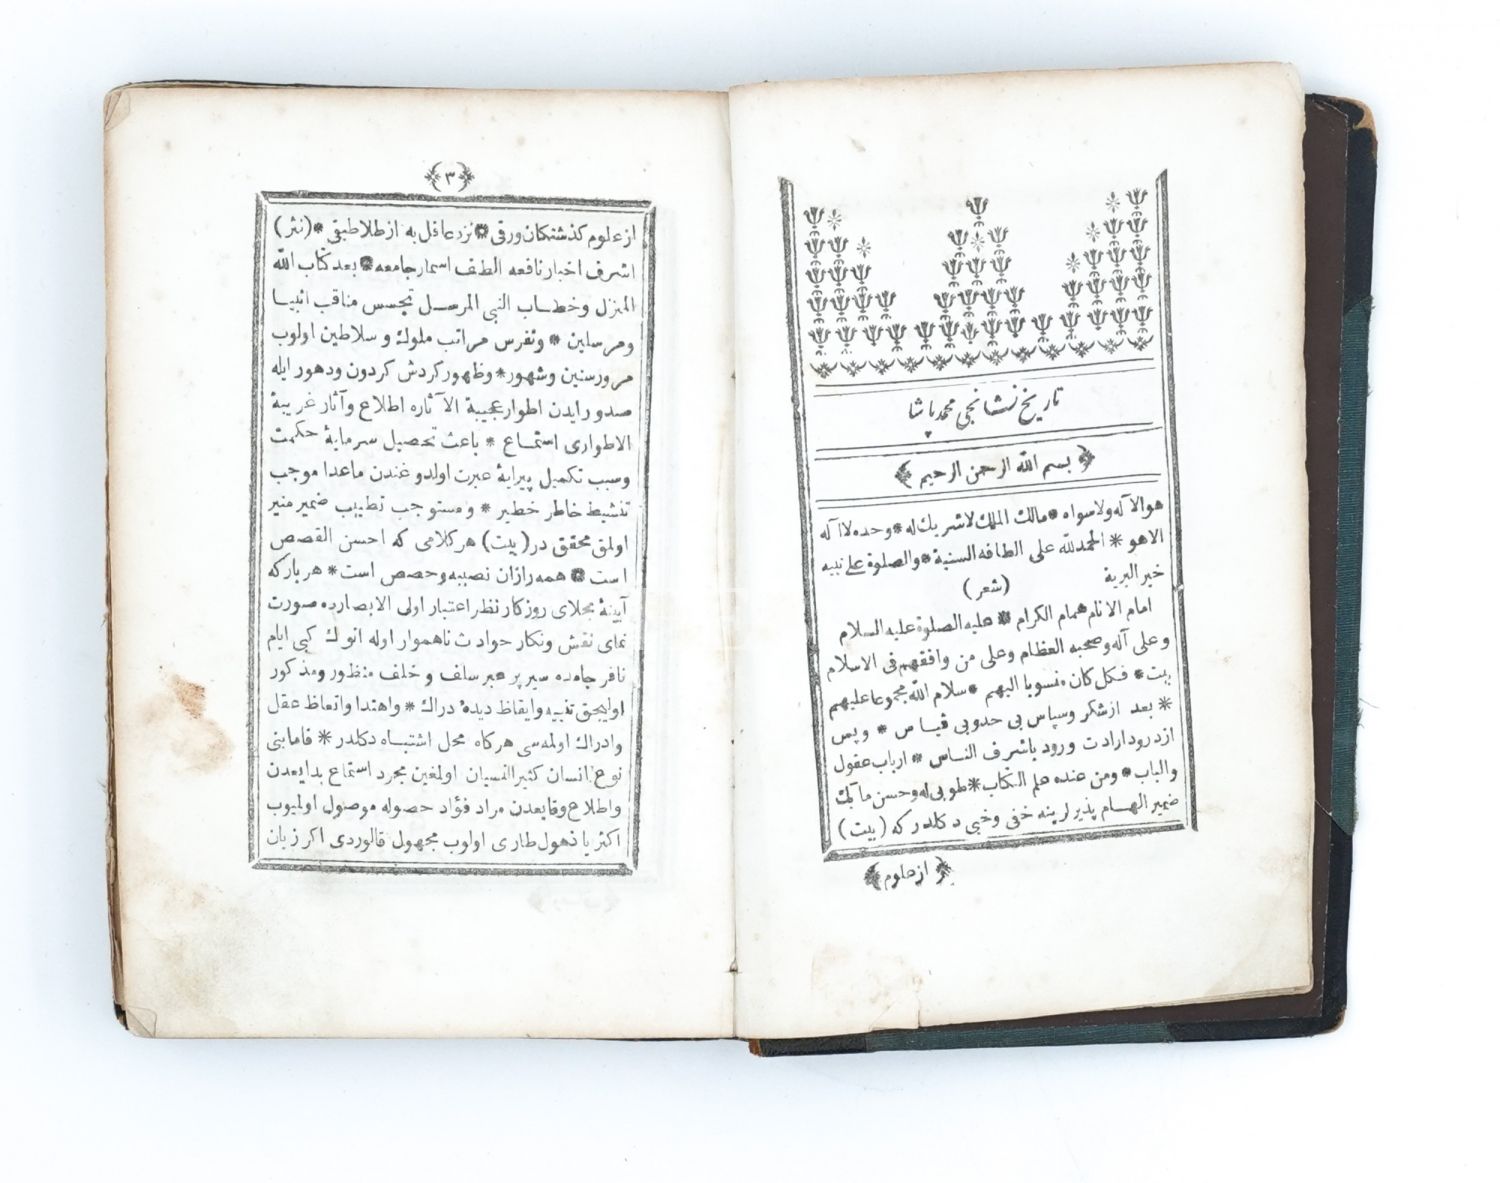 تاریخ نشانجی محمد پاشا
بسم الله الرحمن الرحیم
هو الا آله ولا سواه * مالك الملك لا شریك له * وحده لا اله
الا هو * الحمد لله على الطافه السنیة * والصلوة على نبیه
خیر البریة
(شعر)
امام الانام همام الكرام * علیه الصلوة علیه السلام
وعلى آله وصحبه العظام وعلى من وافقهم فی الاسلام
بیت * فكل كان منسوبا الیهم * سلام الله مجموعا علیهم
* بعد از شكر وسپاس بی حد وبی قیاس * وپس
از درود ارادت ورود باشرف الناس * ارباب عقول
والباب * ومن عنده علم الكتاب * طوبی له وحسن مآبك
ضمیر الهام پذیر لرینه خفی وخبی دكلدر كه (بیت)
از علوم
٣
از علوم كذشتكان ورقی * نزد عاقل به از طلا طبقی * (نثر)
اشرف اخبار نافعه الطف اسمار جامعه * بعد كتاب الله
المنزل وخطاب النبی المرسل تجسس مناقب انبیا
ومرسلین * وتفرس مراتب ملوك وسلاطین اولوب
مرور سنین وشهور * وظهور كردش كردون ودهور ایله
صدور ایدن اطوار عجیبة الآثاره اطلاع وآثار غریبة
الاطواری استماع * باعث تحصیل سرمایهٔ حكمت
وسبب تكمیل پیرایهٔ عبرت اولدوغندن ماعدا موجب
تنشیط خاطر خطیر * ومستوجب تطییب ضمیر منیر
اولمق محقق در (بیت) هر كلامی كه احسن القصص
است * همه رازان نصیبه وحصص است * هر بار كه
آیینهٔ مجلای روزكار نظر اعتبار اولی الابصارده صورت
نمای نقش ونكار حوادث ناهموار اوله انوك كبی ایام
نافرجامده سیر پر عبر سلف وخلف منظور ومذكور
اولیجق تنبیه وایقاظ دیدهٔ دراك * واهتدا واتعاظ عقل
وادراك اولمه سی هركاه محل اشتباه دكلدر * فاما بنی
نوع انسان كثیر النسیان اولمغین مجرد استماع بدایعدن
واطلاع وقایعدن مراد فؤاد حصوله موصول اولمیوب
اكثریا ذهول طاری اولوب مجهول قالوردی اكر زبان